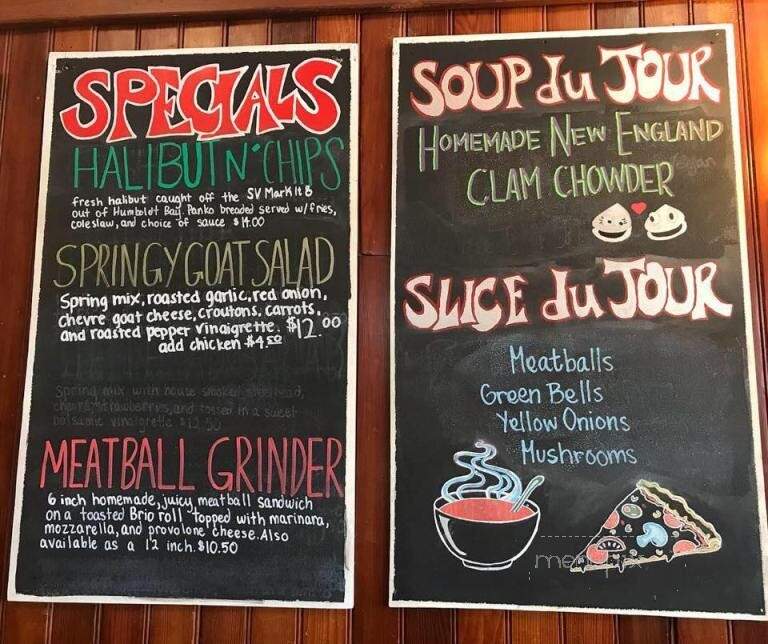 SPECIALS
HALIBUT N' CHIPS
fresh halibut caught off the SV Mark It 8
out of Humboldt Bay. Panko breaded served w/fries,
coleslaw, and choice of sauce $14.00
SPRINGY GOAT SALAD
Spring mix, roasted garlic, red onion,
chevre goat cheese, croutons, carrots,
and roasted pepper vinaigrette. $12.00
add chicken $4.50
Spring mix with house smoked
strawberries, and tossed in a sweet
balsamic vinaigrette $12.50
MEATBALL GRINDER
6 inch homemade, juicy meatball sandwich
on a toasted Brio roll topped with marinara,
mozzarella, and provolone cheese. Also
available as a 12 inch. $10.50
SOUP du JOUR
HOMEMADE NEW ENGLAND
Vegan
CLAM CHOWDER
SLICE du JOUR
Meatballs
Green Bells
Yellow Onions
Mushrooms
menupix